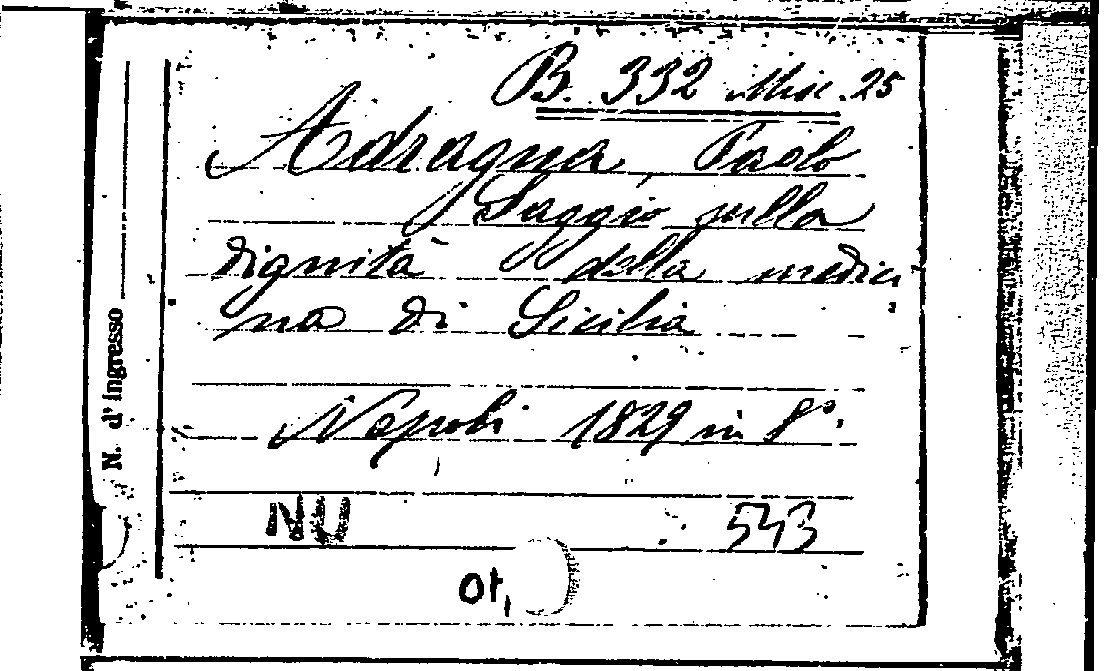 B. 332 Misc. 25
Adragna, Paolo
Saggio sulla
dignità della medici
na di Sicilia
Napoli 1829 in 8°.
NU 543
N. d'ingresso